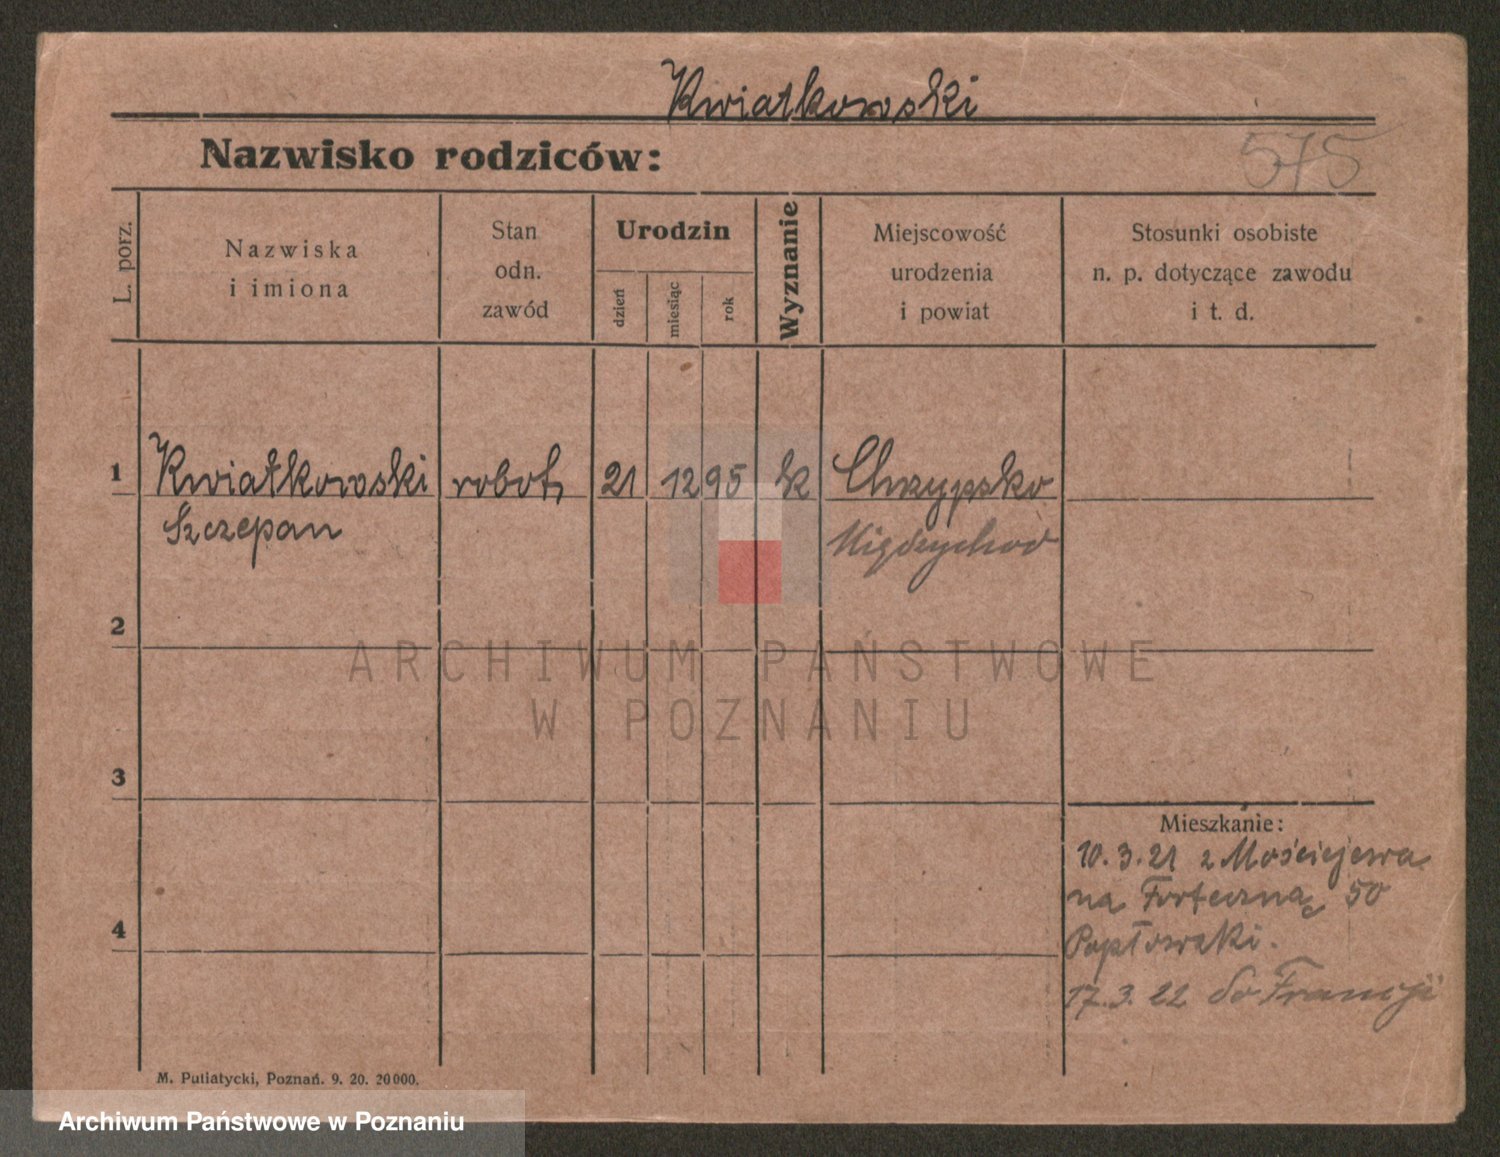 Kwiatkowski
575
Nazwisko rodziców:
L. porz.
Nazwiska
i imiona
Stan
odn.
zawód
Urodzin
dzień
miesiąc
rok
Wyznanie
Miejscowość
urodzenia
i powiat
Stosunki osobiste
n. p. dotyczące zawodu
i t. d.
1 Kwiatkowski robot. 21 12 95 k Chrzypsko
Szczepan Międzychod
2
ARCHIWUM PAŃSTWOWE
W POZNANIU
3
Mieszkanie:
10.3.21 z Mościejewa
na Forteczną 50
4
17.3.22 do Francji
M. Putiatycki, Poznań. 9. 20. 20000.
Archiwum Państwowe w Poznaniu